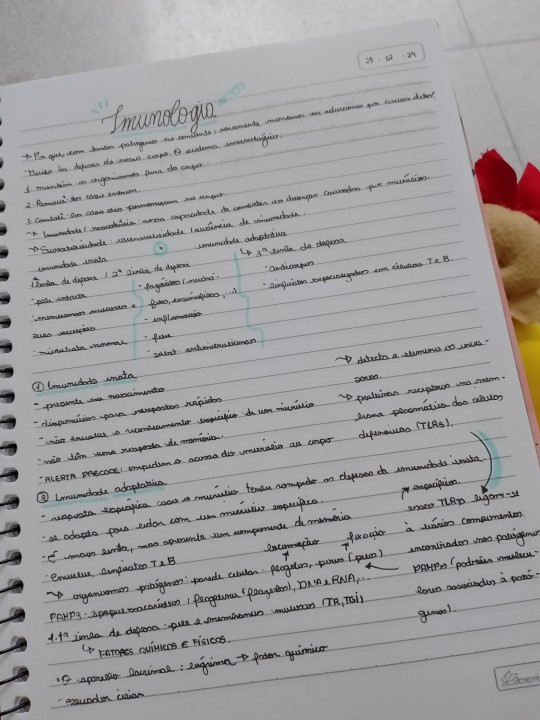 29 - 02 - 24
Imunologia
→ Por que, com tantos patógenos no ambiente, raramente morremos ou adoecemos por causa deles?
Devido às defesas do nosso corpo. O sistema imunológico:
1. mantém os organismos fora do corpo
2. Remove-os caso entrem
3. Combate-os caso eles permaneçam no corpo
→ Imunidade / resistência: nossa capacidade de combater as doenças causadas por micróbios.
→ Suscetibilidade: / ausência de imunidade.
imunidade inata
imunidade adaptativa
1ª linha de defesa / 2ª linha de defesa
↳ 3ª linha de defesa
- pele intacta
- membranas mucosas e
suas secreções
- microbiota normal
- fagócitos (neutró-
filos, eosinófilos, ...)
- inflamação
- febre
- subst. antimicrobianas
- anticorpos
- linfócitos especializados em células T e B.
① Imunidade inata
- presente no nascimento
- disponíveis para respostas rápidas
- não envolve o reconhecimento específico de um micróbio
- não têm uma resposta de memória.
- ALERTA PRECOCE: impedem o acesso dos micróbios ao corpo
→ detecta e elimina os inva-
sores.
→ proteínas receptoras na mem-
brana plasmática das células
defensivas (TLRs).
② Imunidade adaptativa
- resposta específica caso o micróbio tenha rompido as defesas da imunidade inata.
- se adapta para lidar com um micróbio específico.
- É mais lenta, mas apresenta um componente de memória
- Envolve linfócitos T e B
específicos.
esses TLRs ligam-se
à vários componentes
encontrados nos patógenos
PAMPs (padrões molecu-
lares associados à pató-
genos).
locomoção
fixação
→ organismos patógenos: parede celular, flagelos, pili (pelos)
PAMPs: lipopolissacarídeos, flagelina (flagelos), DNA e RNA, ...
1.1ª linha de defesa: pele e membranas mucosas (TR, TGI)
↳ FATORES QUÍMICOS E FÍSICOS.
aparelho lacrimal: lágrima → fator químico
- escalador ciliar